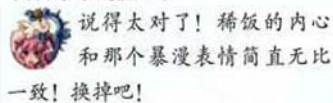 说得太对了！稀饭的内心
和那个暴漫表情简直无比
一致！换掉吧！